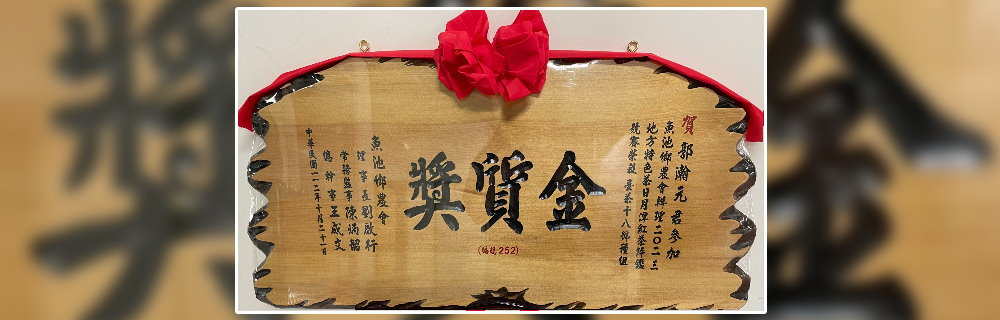 賀 郭瀚元君參加
魚池鄉農會辦理二〇二三
地方特色茶日月潭紅茶評鑑
競賽榮穫 臺茶十八號種組
金質獎
(編號252)
魚池鄉農會
理事長劉啟行
常務監事陳炳韶
總幹事王威文
中華民國一一二年十月二十一日